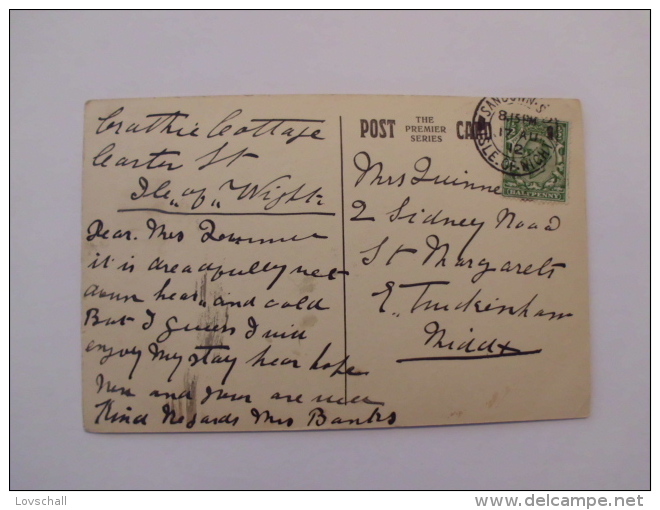 Crathie Cottage
Carter St
Isle of Wight
Dear Mrs
it is dreadfully wet
down hear and cold
But I guess I will
enjoy My stay hear hope
and are well
Kind Regards Mrs Banks
POST CARD
THE
PREMIER
SERIES
SANDOWN-S
8.15 PM
17 AU
12
ISLE.OF.WIGHT
HALFPENNY
Mrs Quinne
2 Sidney Road
St Margarets
E. Twickenham
Middx
Lovschall
delcampe.net